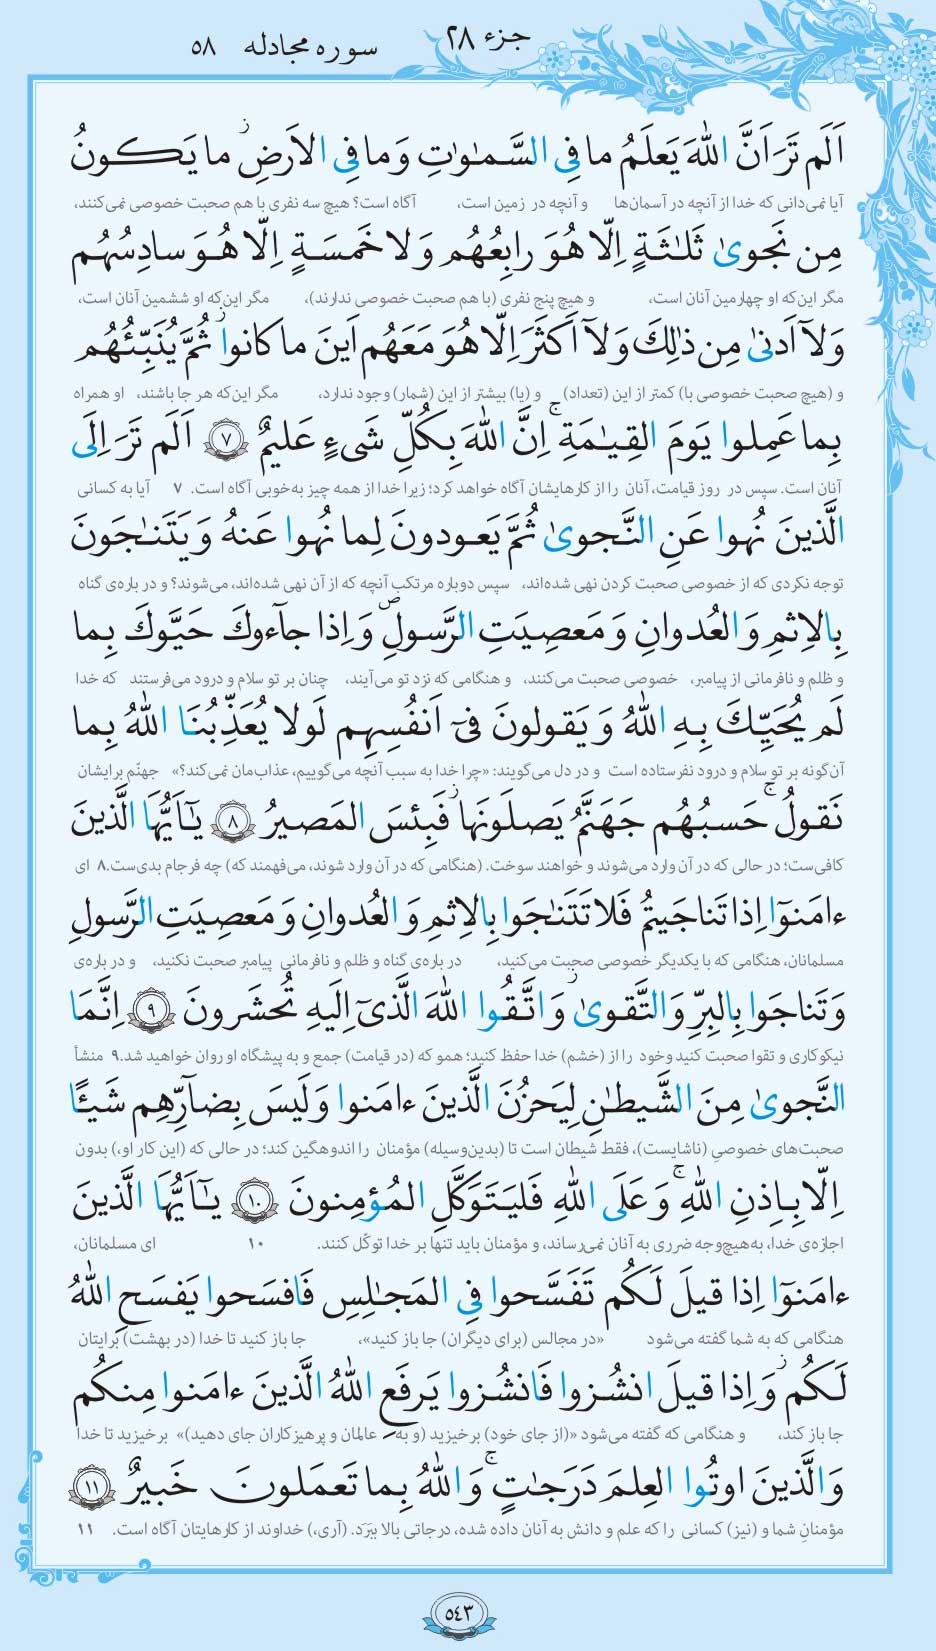 جزء ۲۸
سوره مجادله ۵۸
اَلَم تَرَ اَنَّ اللّٰهَ یَعلَمُ ما فِی السَّمٰوٰتِ وَ ما فِی الاَرضِ ۖز ما یَکونُ
آیا نمی‌دانی که خدا از آنچه در آسمان‌ها و آنچه در زمین است، آگاه است؟ هیچ سه نفری با هم صحبت خصوصی نمی‌کنند،
مِن نَجویٰ ثَلٰثَةٍ اِلّا هُوَ رابِعُهُم وَ لا خَمسَةٍ اِلّا هُوَ سادِسُهُم
مگر این‌که او چهارمین آنان است، و هیچ پنج نفری (با هم صحبت خصوصی ندارند)، مگر این‌که او ششمین آنان است،
وَ لآ اَدنیٰ مِن ذٰلِكَ وَ لآ اَکثَرَ اِلّا هُوَ مَعَهُم اَینَ ما کانوا ز ثُمَّ یُنَبِّئُهُم
و (هیچ صحبت خصوصی با) کمتر از این (تعداد) و (یا) بیشتر از این (شمار) وجود ندارد، مگر این‌که هر جا باشند، او همراه
بِما عَمِلوا یَومَ القِیٰمَةِ ۚ اِنَّ اللّٰهَ بِکُلِّ شَیءٍ عَلیمٌ ۷ اَلَم تَرَ اِلَی
آنان است. سپس در روز قیامت، آنان را از کارهایشان آگاه خواهد کرد؛ زیرا خدا از همه چیز به‌خوبی آگاه است. ۷ آیا به کسانی
الَّذینَ نُهوا عَنِ النَّجویٰ ثُمَّ یَعودونَ لِما نُهوا عَنهُ وَ یَتَنٰجَونَ
توجه نکردی که از خصوصی صحبت کردن نهی شده‌اند، سپس دوباره مرتکب آنچه که از آن نهی شده‌اند، می‌شوند؟ و در باره‌ی گناه
بِالاِثمِ وَ العُدوانِ وَ مَعصِیَتِ الرَّسولِ ص وَ اِذا جآءوكَ حَیَّوكَ بِما
و ظلم و نافرمانی از پیامبر، خصوصی صحبت می‌کنند، و هنگامی که نزد تو می‌آیند، چنان بر تو سلام و درود می‌فرستند که خدا
لَم یُحَیِّكَ بِهِ اللّٰهُ وَ یَقولونَ فیٓ اَنفُسِهِم لَولا یُعَذِّبُنَا اللّٰهُ بِما
آن‌گونه بر تو سلام و درود نفرستاده است و در دل می‌گویند: «چرا خدا به سبب آنچه می‌گوییم، عذاب‌مان نمی‌کند؟» جهنّم برایشان
نَقولُ ۚ حَسبُهُم جَهَنَّمُ یَصلَونَها ز فَبِئسَ المَصیرُ ۸ یٰٓاَیُّهَا الَّذینَ
کافی‌ست؛ در حالی که در آن وارد می‌شوند و خواهند سوخت. (هنگامی که در آن وارد شوند، می‌فهمند که) چه فرجام بدی‌ست.۸ ای
ءامَنوٓا اِذا تَناجَیتُم فَلا تَتَنٰجَوا بِالاِثمِ وَ العُدوانِ وَ مَعصِیَتِ الرَّسولِ
مسلمانان، هنگامی که با یکدیگر خصوصی صحبت می‌کنید، در باره‌ی گناه و ظلم و نافرمانی پیامبر صحبت نکنید، و در باره‌ی
وَ تَناجَوا بِالبِرِّ وَ التَّقویٰ ز وَ اتَّقُوا اللّٰهَ الَّذیٓ اِلَیهِ تُحشَرونَ ۹ اِنَّمَا
نیکوکاری و تقوا صحبت کنید وخود را از (خشم) خدا حفظ کنید؛ همو که (در قیامت) جمع و به پیشگاه او روان خواهید شد.۹ منشأ
النَّجویٰ مِنَ الشَّیطٰنِ لِیَحزُنَ الَّذینَ ءامَنوا وَ لَیسَ بِضآرِّهِم شَیـًٔا
صحبت‌های خصوصیِ (ناشایست)، فقط شیطان است تا (بدین‌وسیله) مؤمنان را اندوهگین کند؛ در حالی که (این کار او،) بدون
اِلّا بِاِذنِ اللّٰهِ ۚ وَ عَلَی اللّٰهِ فَلیَتَوَکَّلِ المُؤمِنونَ ۱۰ یٰٓاَیُّهَا الَّذینَ
اجازه‌ی خدا، به‌هیچ‌وجه ضرری به آنان نمی‌رساند، و مؤمنان باید تنها بر خدا توکّل کنند. ۱۰ ای مسلمانان،
ءامَنوٓا اِذا قیلَ لَکُم تَفَسَّحوا فِی المَجٰلِسِ فَافسَحوا یَفسَحِ اللّٰهُ
هنگامی که به شما گفته می‌شود «در مجالس (برای دیگران) جا باز کنید»، جا باز کنید تا خدا (در بهشت) برایتان
لَکُم ز وَ اِذا قیلَ انشُزوا فَانشُزوا یَرفَعِ اللّٰهُ الَّذینَ ءامَنوا مِنکُم
جا باز کند، و هنگامی که گفته می‌شود «(از جای خود) برخیزید (و به عالمان و پرهیزکاران جای دهید)» برخیزید تا خدا
وَ الَّذینَ اوتُوا العِلمَ دَرَجٰتٍ ۚ وَ اللّٰهُ بِما تَعمَلونَ خَبیرٌ ۱۱
مؤمنانِ شما و (نیز) کسانی را که علم و دانش به آنان داده شده، درجاتی بالا ببَرَد. (آری،) خداوند از کارهایتان آگاه است. ۱۱
۵۴۳